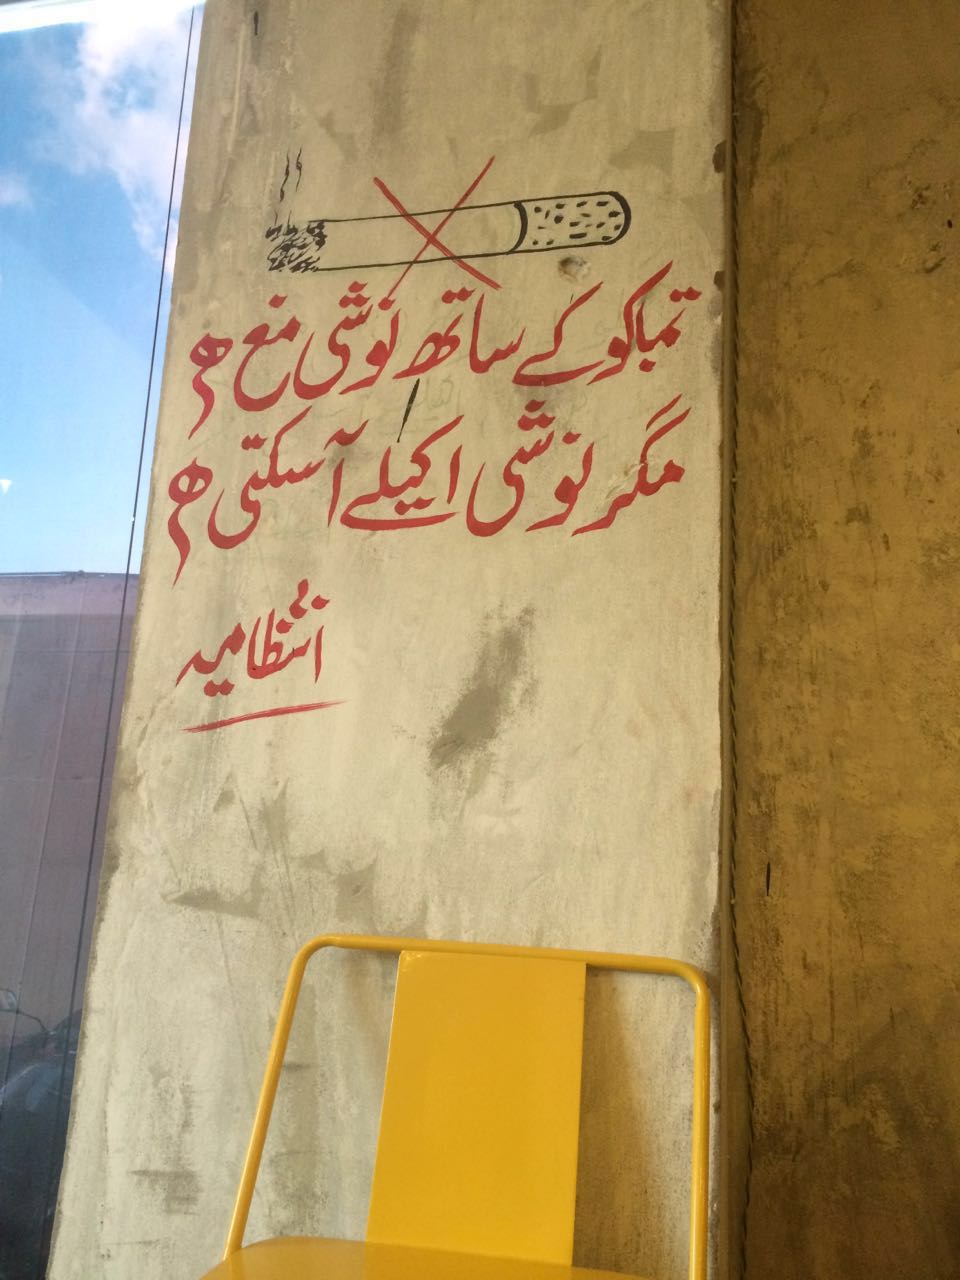 تمباکو کے ساتھ نوشی منع ہے
مگر نوشی اکیلے آ سکتی ہے
انتظامیہ